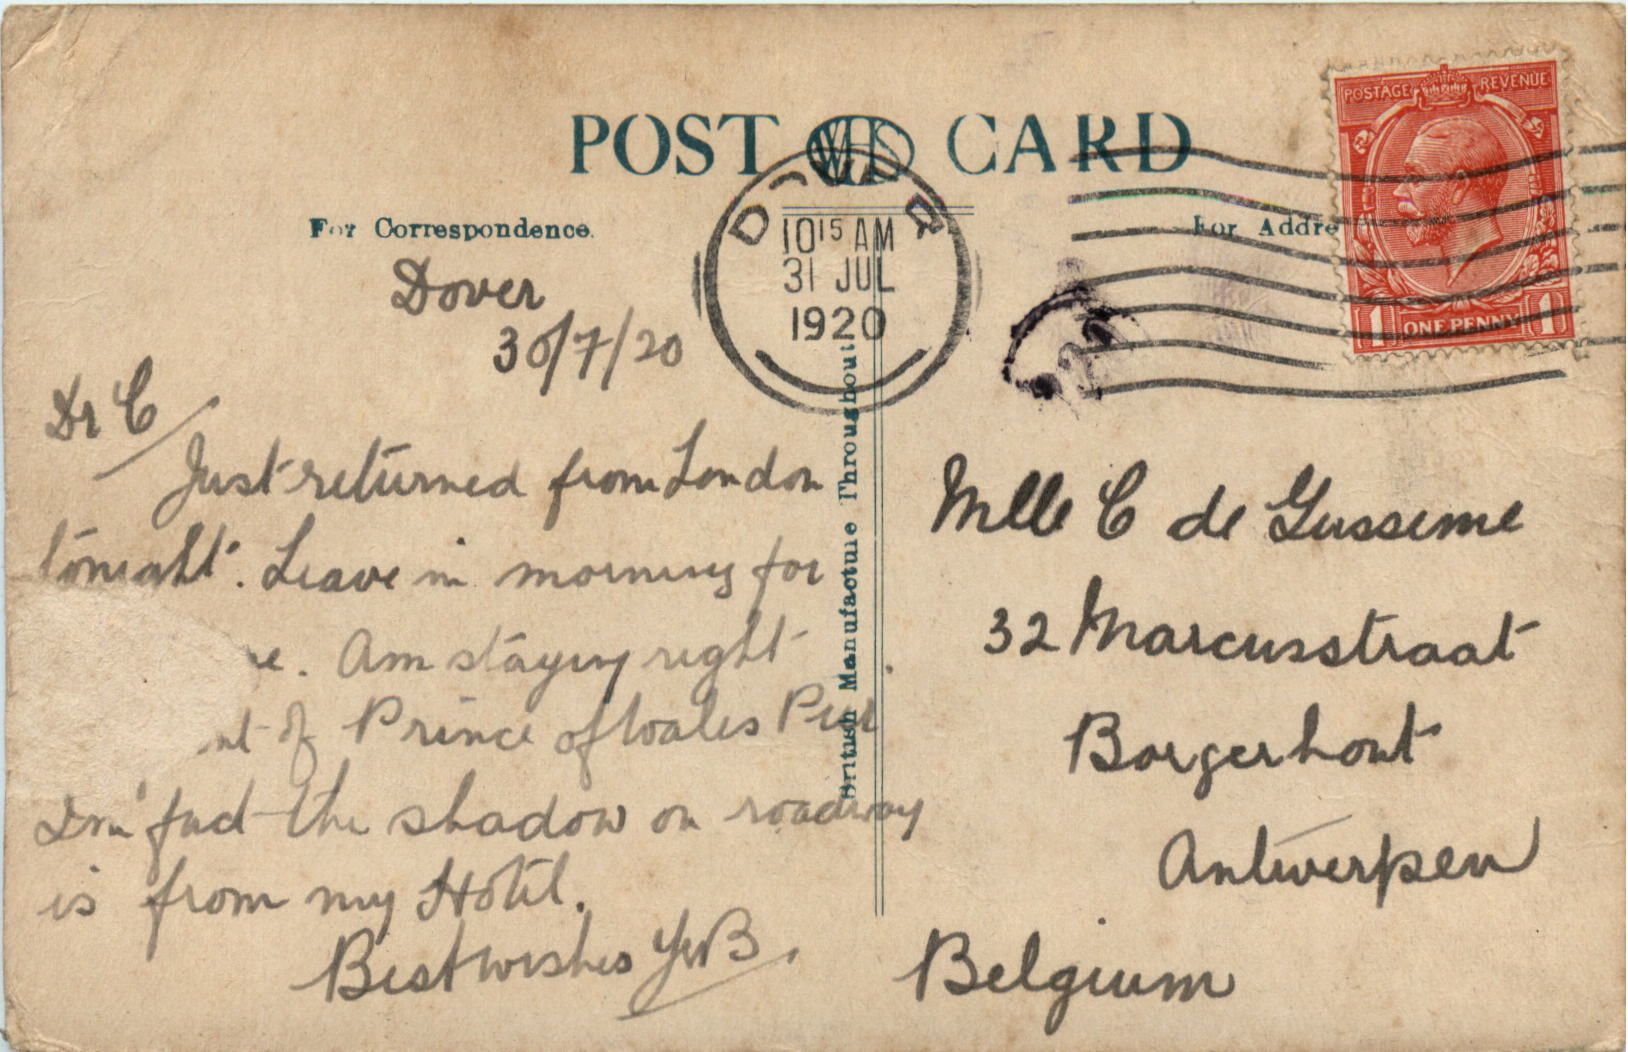 POST CARD
For Correspondence.
For Addre
British Manufacture Throughout
DOVER
10 15 AM
31 JUL
1920
POSTAGE REVENUE
1 ONE PENNY 1
Dover
30/7/20
Dr C/
Just returned from London
tonight. Leave in morning for
Am staying right
of Prince of Wales Pier
In fact the shadow on roadway
is from my Hotel.
Best wishes
Mlle C de Gusseme
32 Marcusstraat
Borgerhout
Antwerpen
Belgium